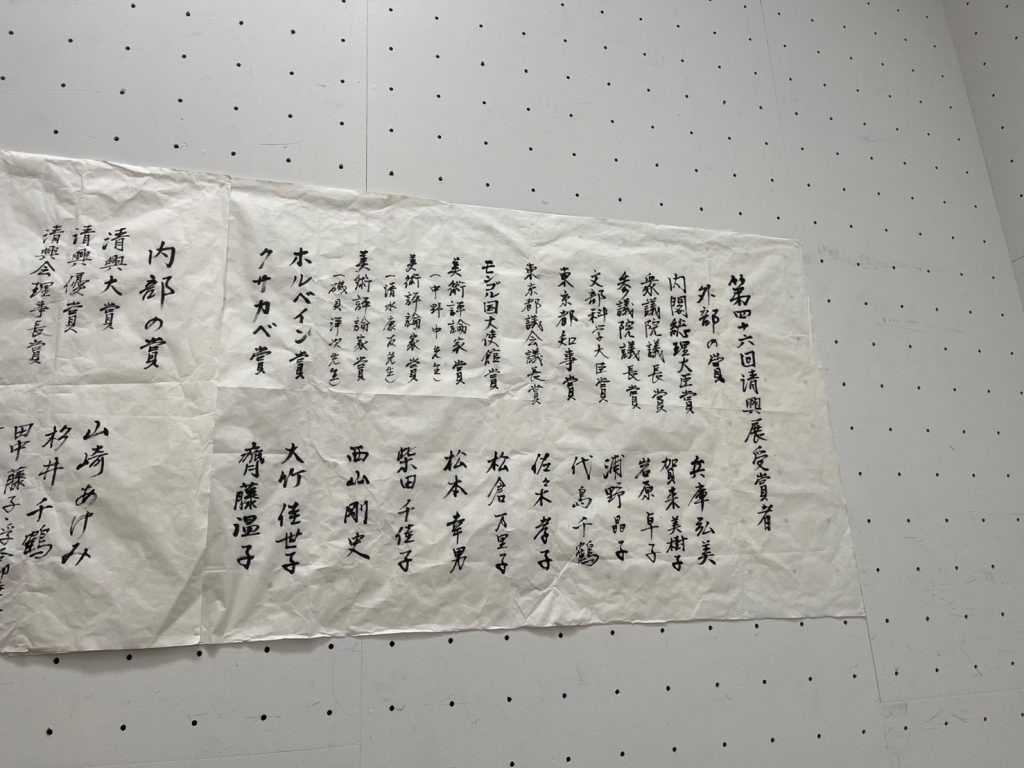 第四十六回清興展受賞者
外部の賞
内閣総理大臣賞 兵庫弘美
衆議院議長賞 賀来美樹子
参議院議長賞 岩原卓子
文部科学大臣賞 浦野晶子
東京都知事賞 代島千鶴
東京都議会議長賞 佐々木孝子
モンゴル国大使館賞 松倉万里子
美術評論家賞 松本幸男
(中野中先生)
美術評論家賞 柴田千佳子
(清水康友先生)
美術評論家賞 西山剛史
(磯貝洋次先生)
ホルベイン賞 大竹佳世子
クサカベ賞 齊藤温子
内部の賞
清興大賞 山崎あけみ
清興優賞 杉井千鶴
清興会理事長賞 田中藤子・